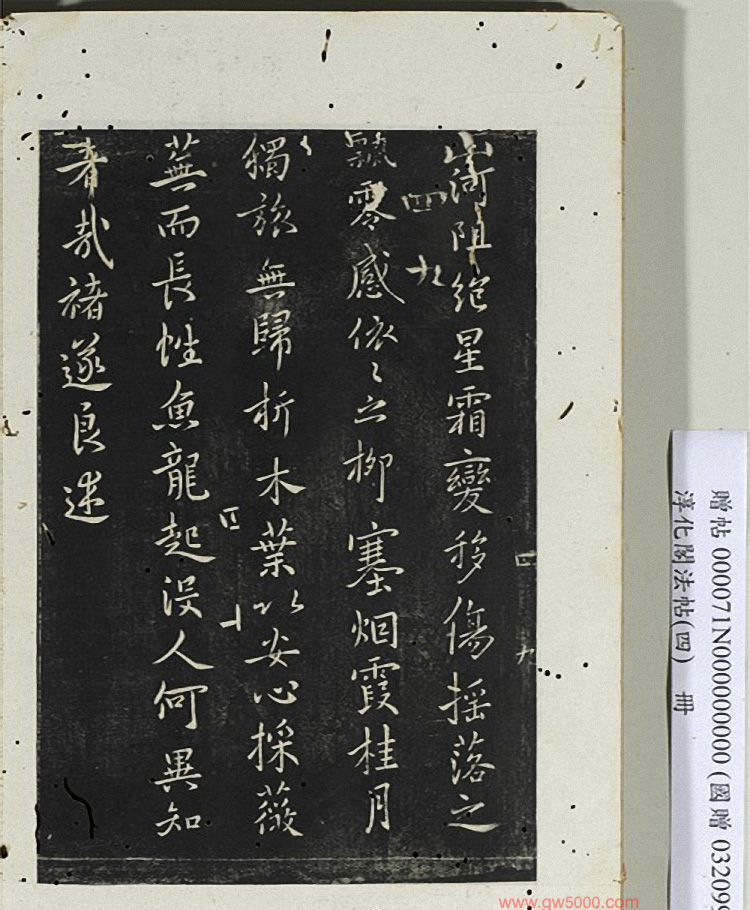 山河阻絶星霜變移傷摇落之
飄零感依〻之柳塞烟霞桂月
獨旅無歸折木葉以安心採薇
蕪而長性魚龍起没人何異知
者哉褚遂良述
四
九
四
九
四
贈帖 000071N000000000 (國贈 03209
淳化閣法帖(四) 冊
www.gw5000.com